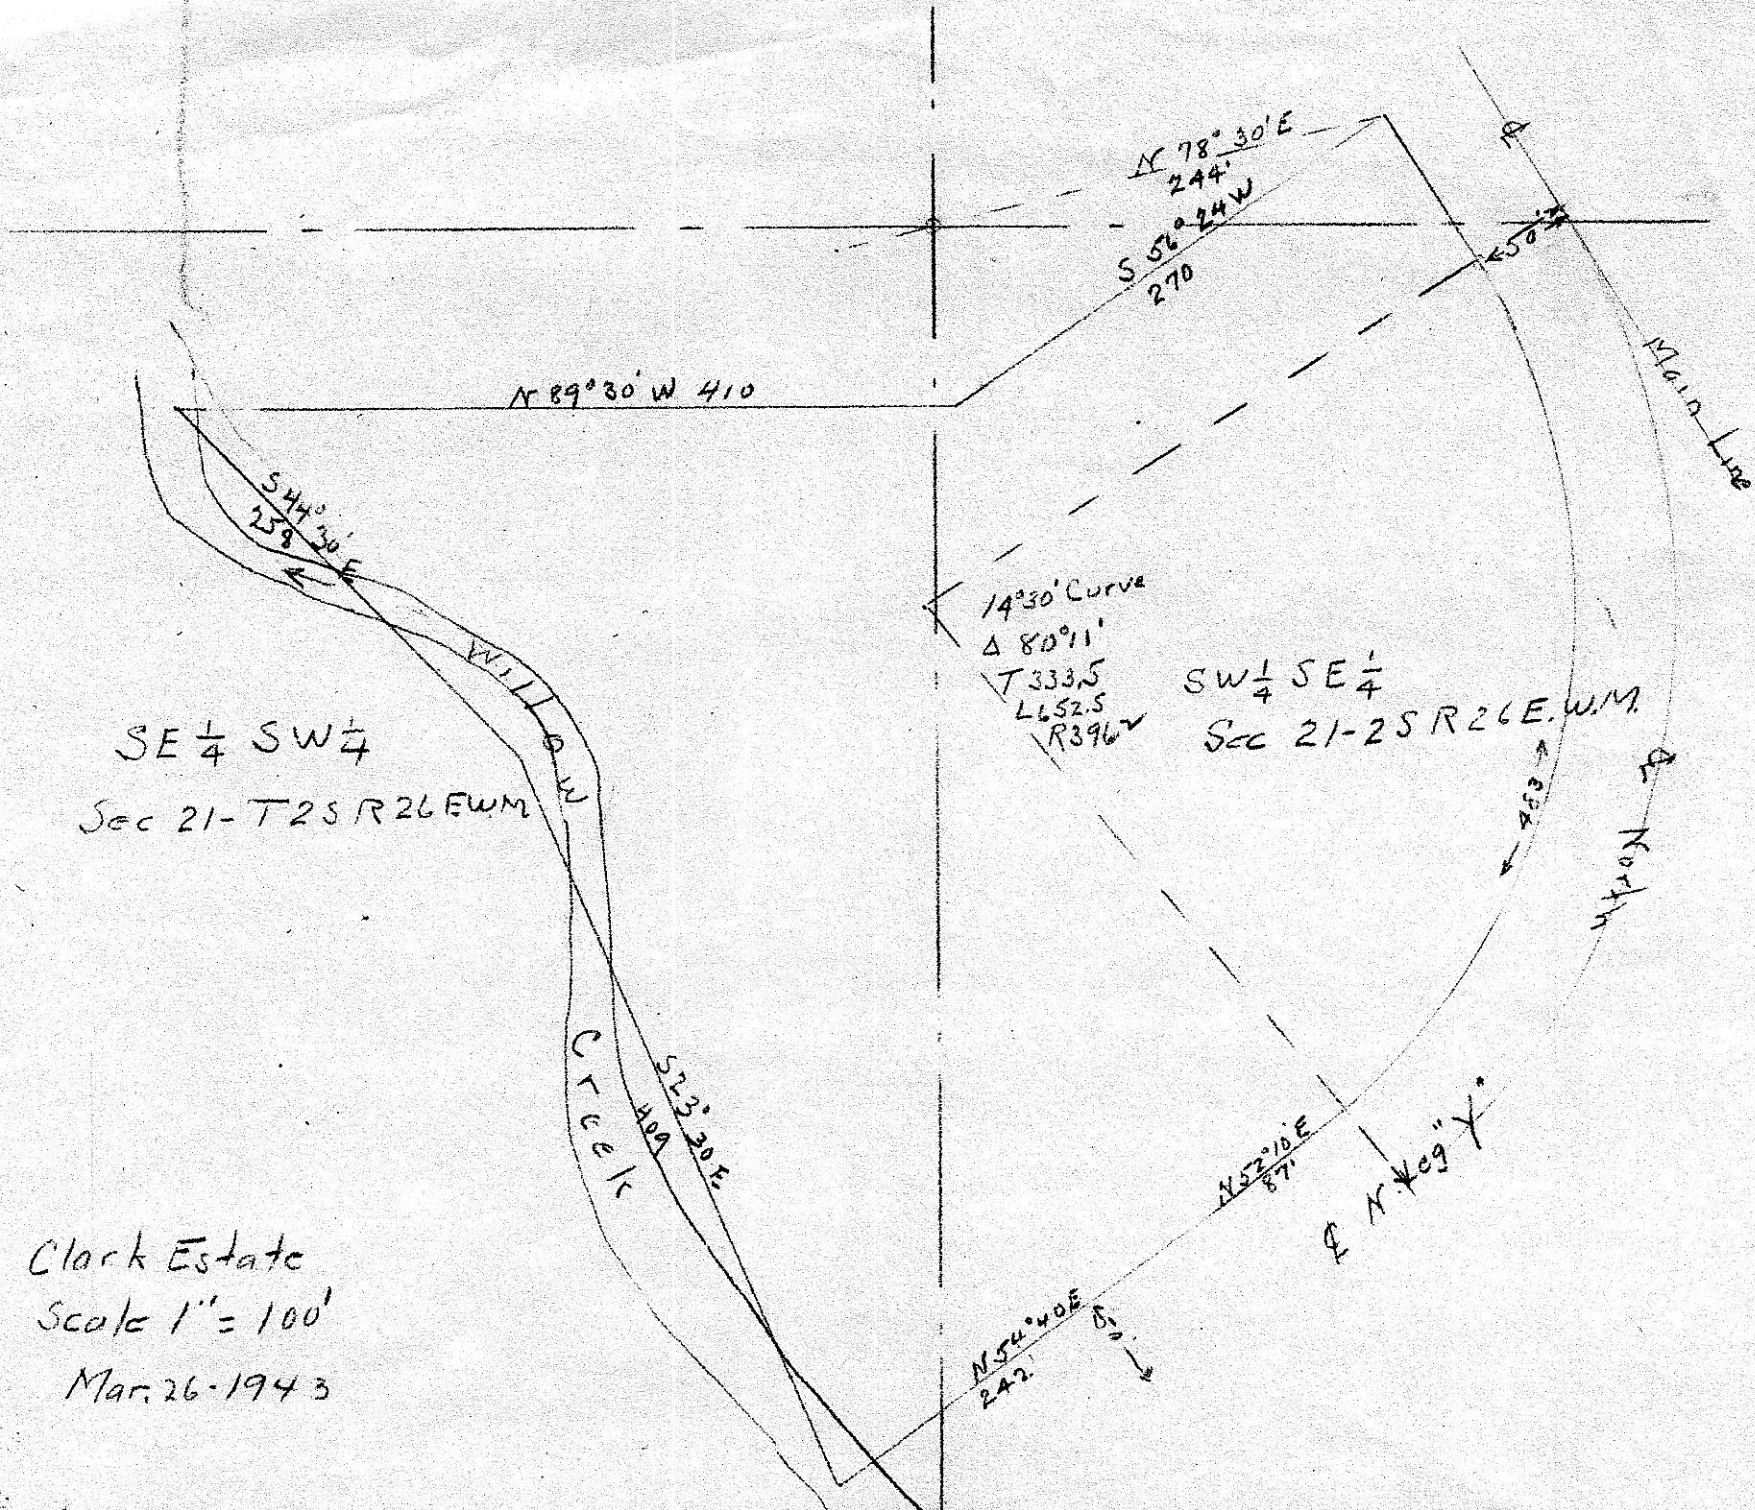 N 78° 30' E
244'
S 56° 24 W
270
50'
Main Line
N 89° 30' W 410
S 44° 30' E
258
14°30' Curve
Δ 80°11'
T 333.5
L652.5
R396
SW 1/4 SE 1/4
Sec 21-2S R26E.W.M.
Willow
SE 1/4 SW 1/4
Sec 21-T2S R26EWM
483
North
Creek
S 23° 30 E.
409
N 52° 10' E
87'
℄ N. Leg "Y"
Clark Estate
Scale 1" = 100'
Mar. 26-1943
N 54° 40 E
242'